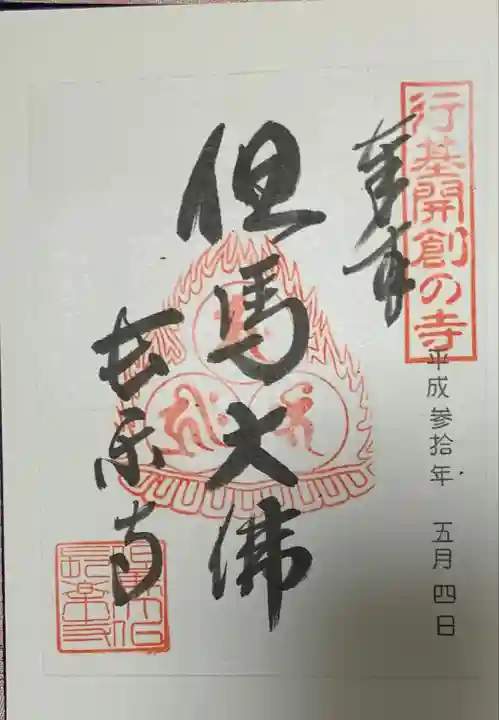 行基開創の寺
平成参拾年 五月四日
奉拝
但馬大佛
長楽寺